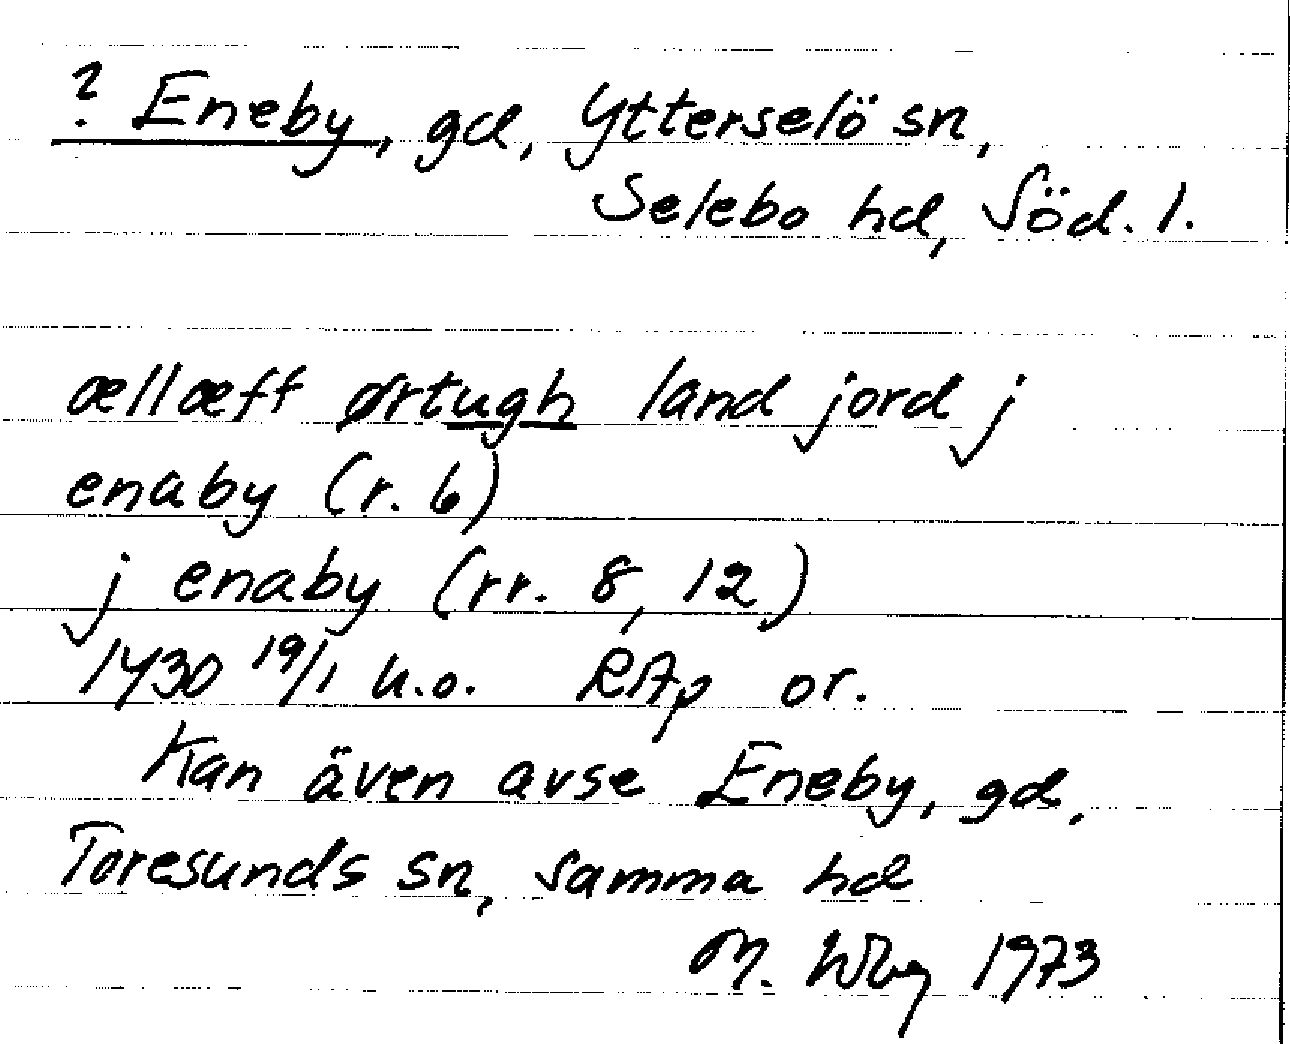 ? Eneby, gd, Ytterselö sn,
Selebo hd, Söd. l.
ællæff ørtugh land jord j
enaby (r. 6)
j enaby (rr. 8, 12)
1430 19/1 u.o. RAp or.
Kan även avse Eneby, gd,
Toresunds sn, samma hd
M. Wbg 1973